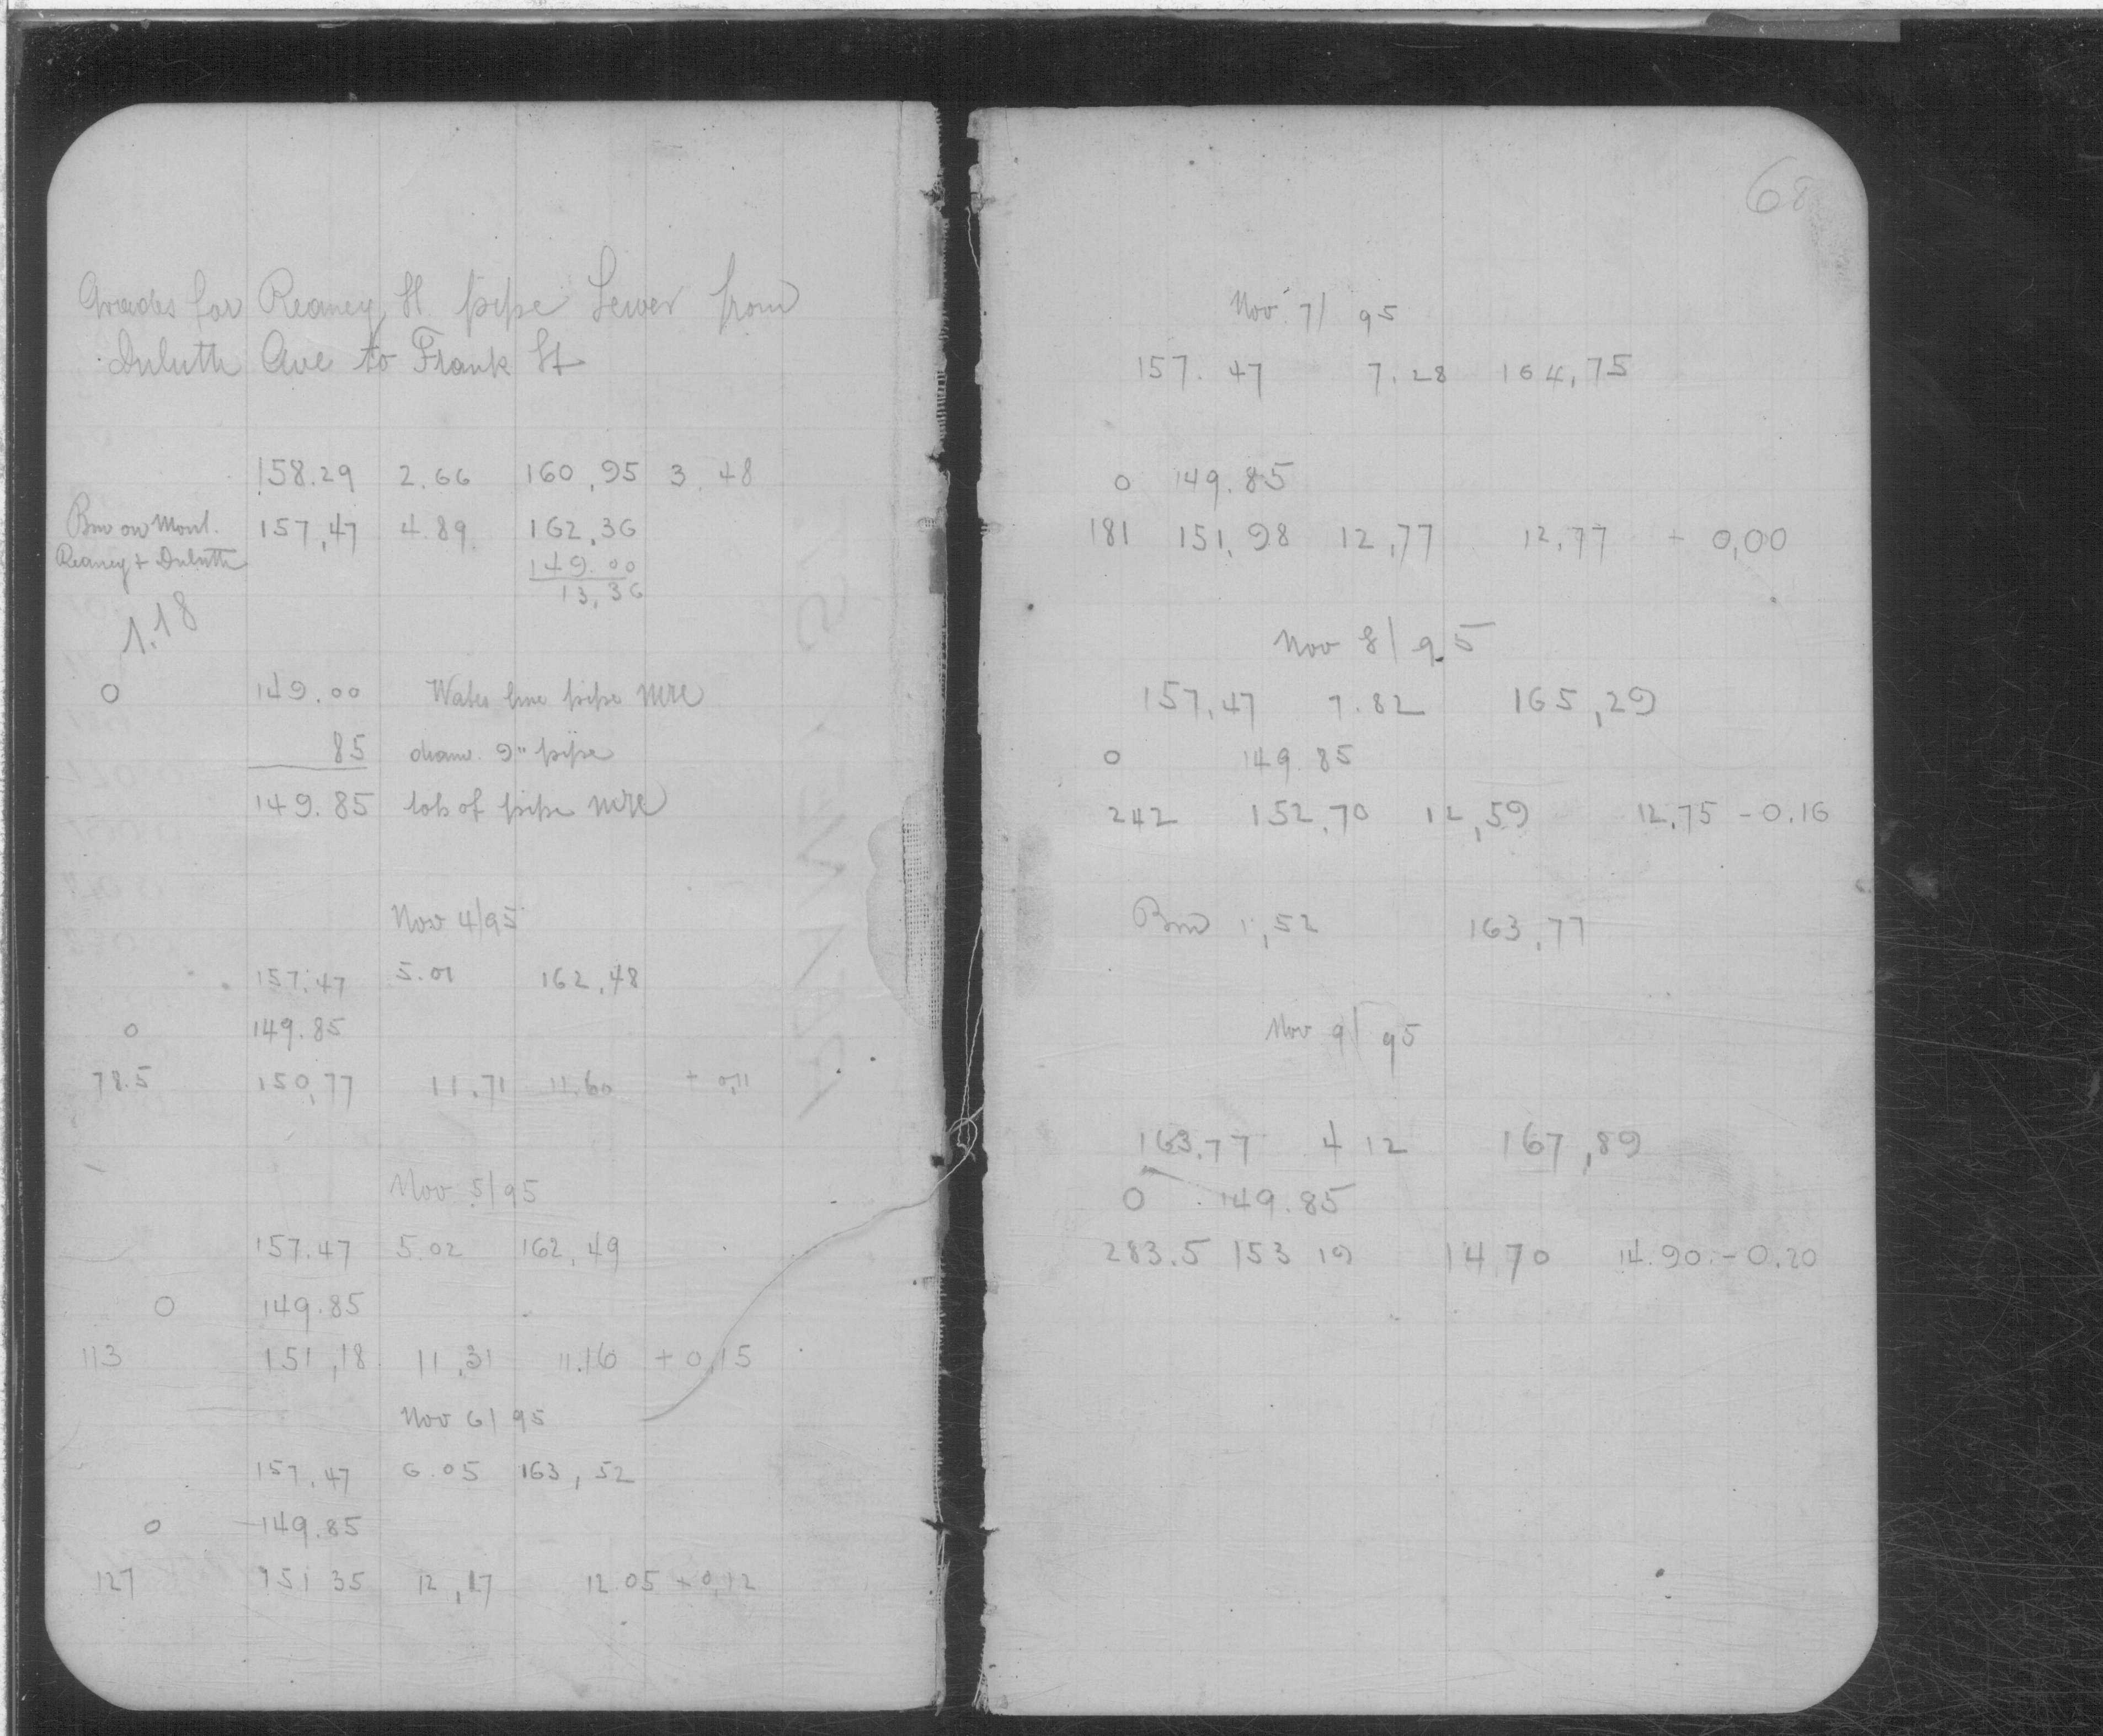 Grades for Reaney St pipe Sewer from
Duluth Ave to Frank St
158.29 2.66 160,95 3.48
Bm on Mont. 157,47 4.89 162,36
Reaney + Duluth 149.00
13,36
1.18
0 149.00 Water line pipe
85 diam. 9" pipe
149.85 top of pipe
Nov 4/95
157.47 5.01 162,48
0 149.85
78.5 150,77 11.71 11.60 + 0,11
Nov 5/95
157.47 5.02 162,49
0 149.85
113 151,18 11,31 11.16 + 0,15
Nov 6/95
157,47 6.05 163,52
0 149.85
127 151 35 12,17 12.05 + 0,12
68
Nov 7/95
157.47 7.28 164,75
0 149.85
181 151,98 12,77 12,77 + 0,00
Nov 8/95
157,47 7.82 165,29
0 149.85
242 152,70 12,59 12,75 - 0.16
Bm 1,52 163,77
Nov 9/95
163,77 4 12 167,89
0 149.85
283.5 153 19 14 70 14.90 - 0.20